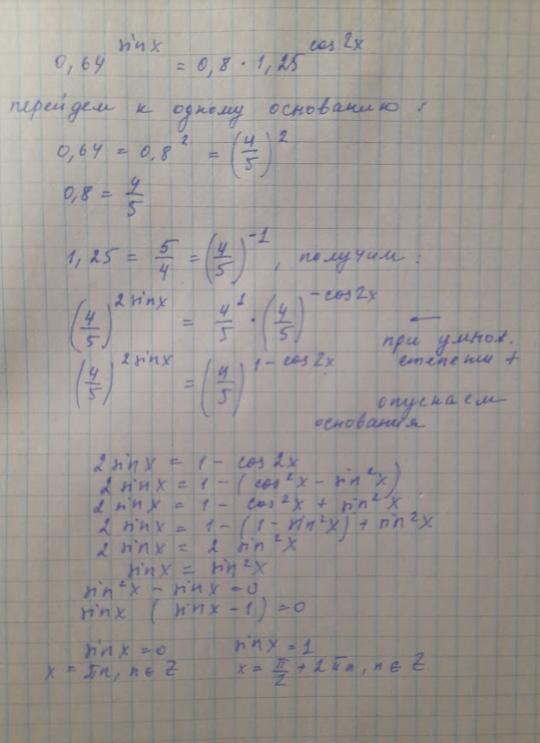 0,64^sinx = 0,8 · 1,25^cos2x
перейдем к одному основанию:
0,64 = 0.8² = (4/5)²
0,8 = 4/5
1,25 = 5/4 = (4/5)^-1, получим:
(4/5)^2sinx = 4/5^1 · (4/5)^-cos2x ←
при умнож.
степени +
(4/5)^2sinx = (4/5)^1-cos2x
опускаем
основания
2sinx = 1 - cos2x
2sinx = 1 - (cos²x - sin²x)
2sinx = 1 - cos²x + sin²x
2sinx = 1 - (1 - sin²x) + sin²x
2sinx = 2 sin²x
sinx = sin²x
sin²x - sinx = 0
sinx (sinx - 1) = 0
sinx = 0 sinx = 1
x = πn, n ∈ Z x = π/2 + 2πn, n ∈ Z